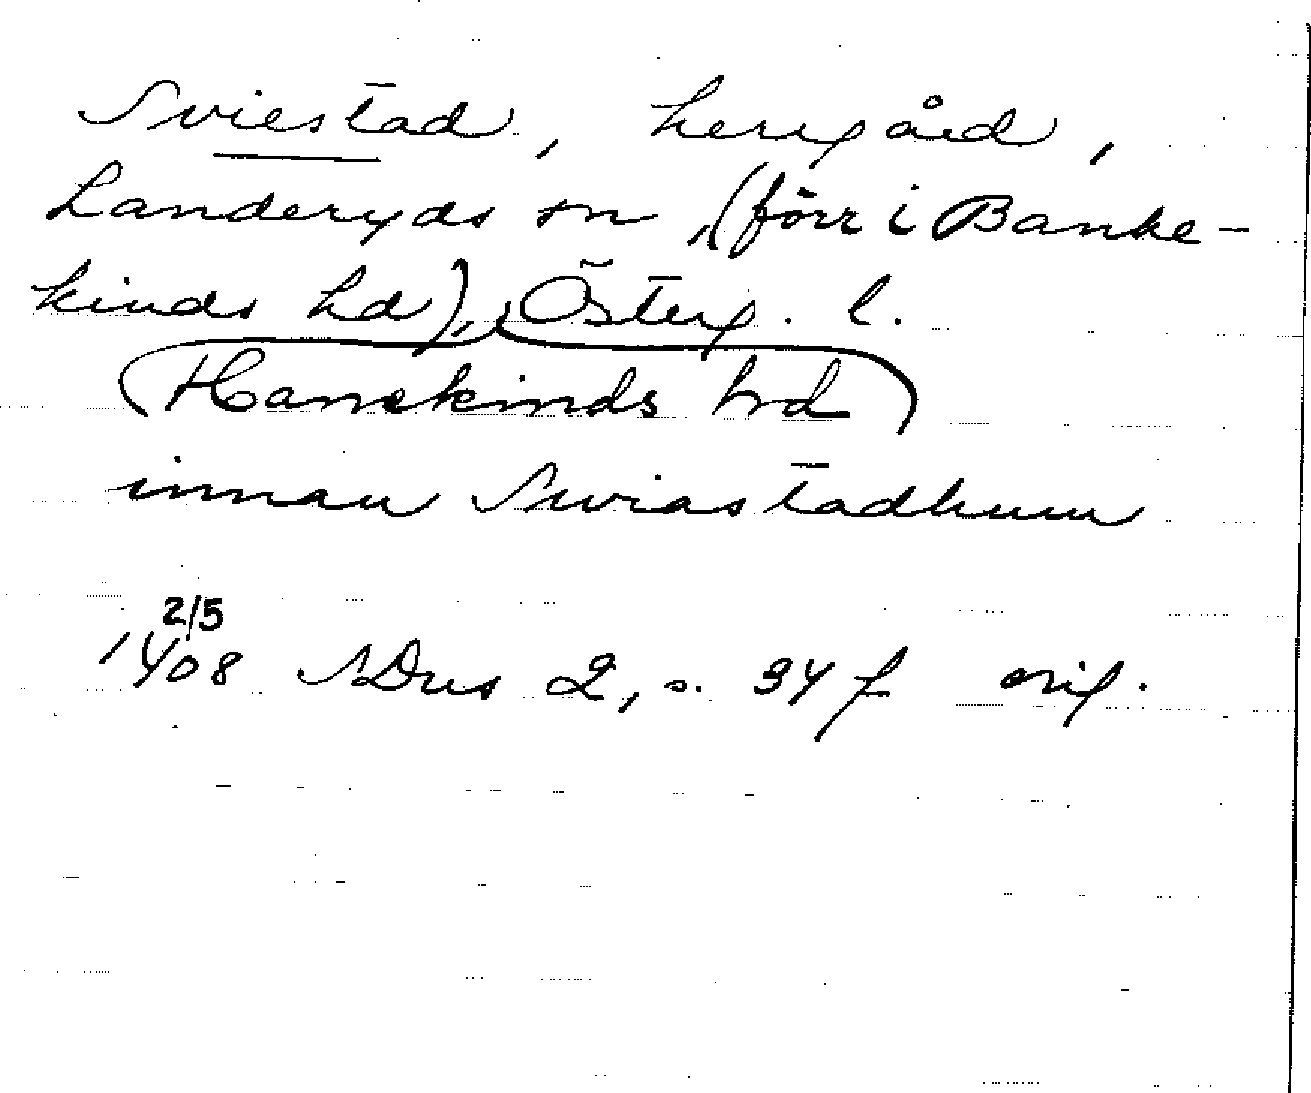 Sviestad, herrgård,
Landeryds sn, (förr i Banke-
kinds hd), Österg. l.
(Hanekinds hrd)
innan Swiastadhum
2/5
1408 SDns 2, s. 34 f orig.